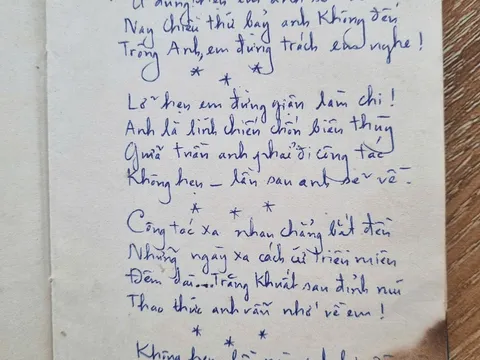 Nay chiều thứ bảy anh Không đến
Trống Anh, em đừng trách em nghe!
* * *
Lỡ hẹn em đừng giận làm chi!
Anh là lính chiến chốn biên thùy
Giữa trần anh phải đi công tác
Không hẹn - lần sau anh sẽ về.
* * *
Công tác xa nhau chẳng bắt đền
Những ngày xa cách cứ triền miên
Đêm dài... Trăng khuất sau đỉnh núi
Thao thức anh vẫn nhớ về em!
* * *
Không hẹn lần